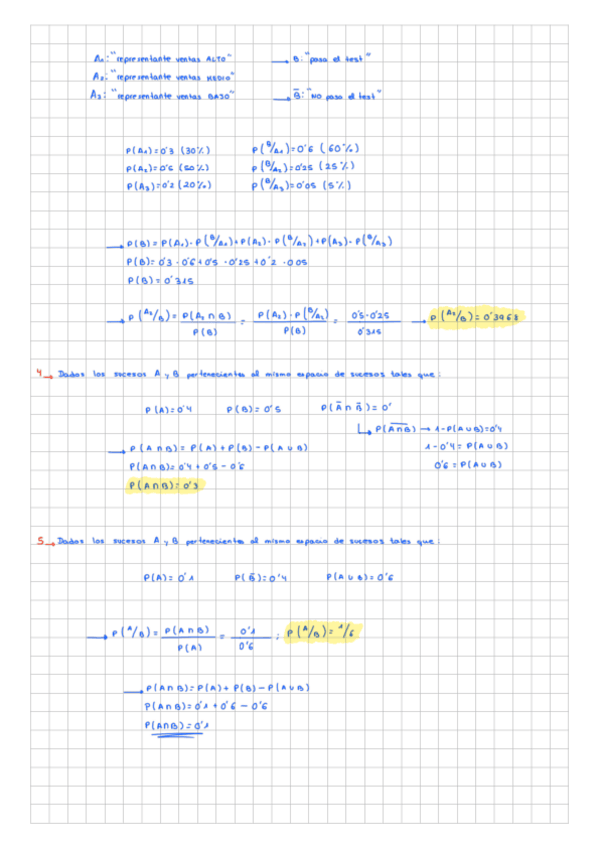 A₁: "representante ventas ALTO" → B: "pasa el test"
A₂: "representante ventas MEDIO"
A₃: "representante ventas BAJO" → B̅: "NO pasa el test"
P(A₁)=0'3 (30%) P(B/A₁)=0'6 (60%)
P(A₂)=0'5 (50%) P(B/A₂)=0'25 (25%)
P(A₃)=0'2 (20%) P(B/A₃)=0'05 (5%)
→ P(B)=P(A₁)·P(B/A₁)+P(A₂)·P(B/A₂)+P(A₃)·P(B/A₃)
P(B)=0'3·0'6+0'5·0'25+0'2·0'05
P(B)=0'315
→ P(A₂/B)=P(A₂∩B)/P(B) = P(A₂)·P(B/A₂)/P(B) = 0'5·0'25/0'315 → P(A₂/B)=0'3968
4→ Dados los sucesos A y B pertenecientes al mismo espacio de sucesos tales que:
P(A)=0'4 P(B)=0'5 P(A̅∩B̅)=0'
↳ P(A̅∩̅B̅) → 1-P(A∪B)=0'4
→ P(A∩B)=P(A)+P(B)-P(A∪B) 1-0'4=P(A∪B)
P(A∩B)=0'4+0'5-0'6 0'6=P(A∪B)
P(A∩B)=0'3
5→ Dados los sucesos A y B pertenecientes al mismo espacio de sucesos tales que:
P(A)=0'1 P(B̅)=0'4 P(A∪B)=0'6
→ P(A/B)=P(A∩B)/P(A) = 0'1/0'6 ; P(A/B)=1/6
→ P(A∩B)=P(A)+P(B)-P(A∪B)
P(A∩B)=0'1+0'6-0'6
P(A∩B)=0'1